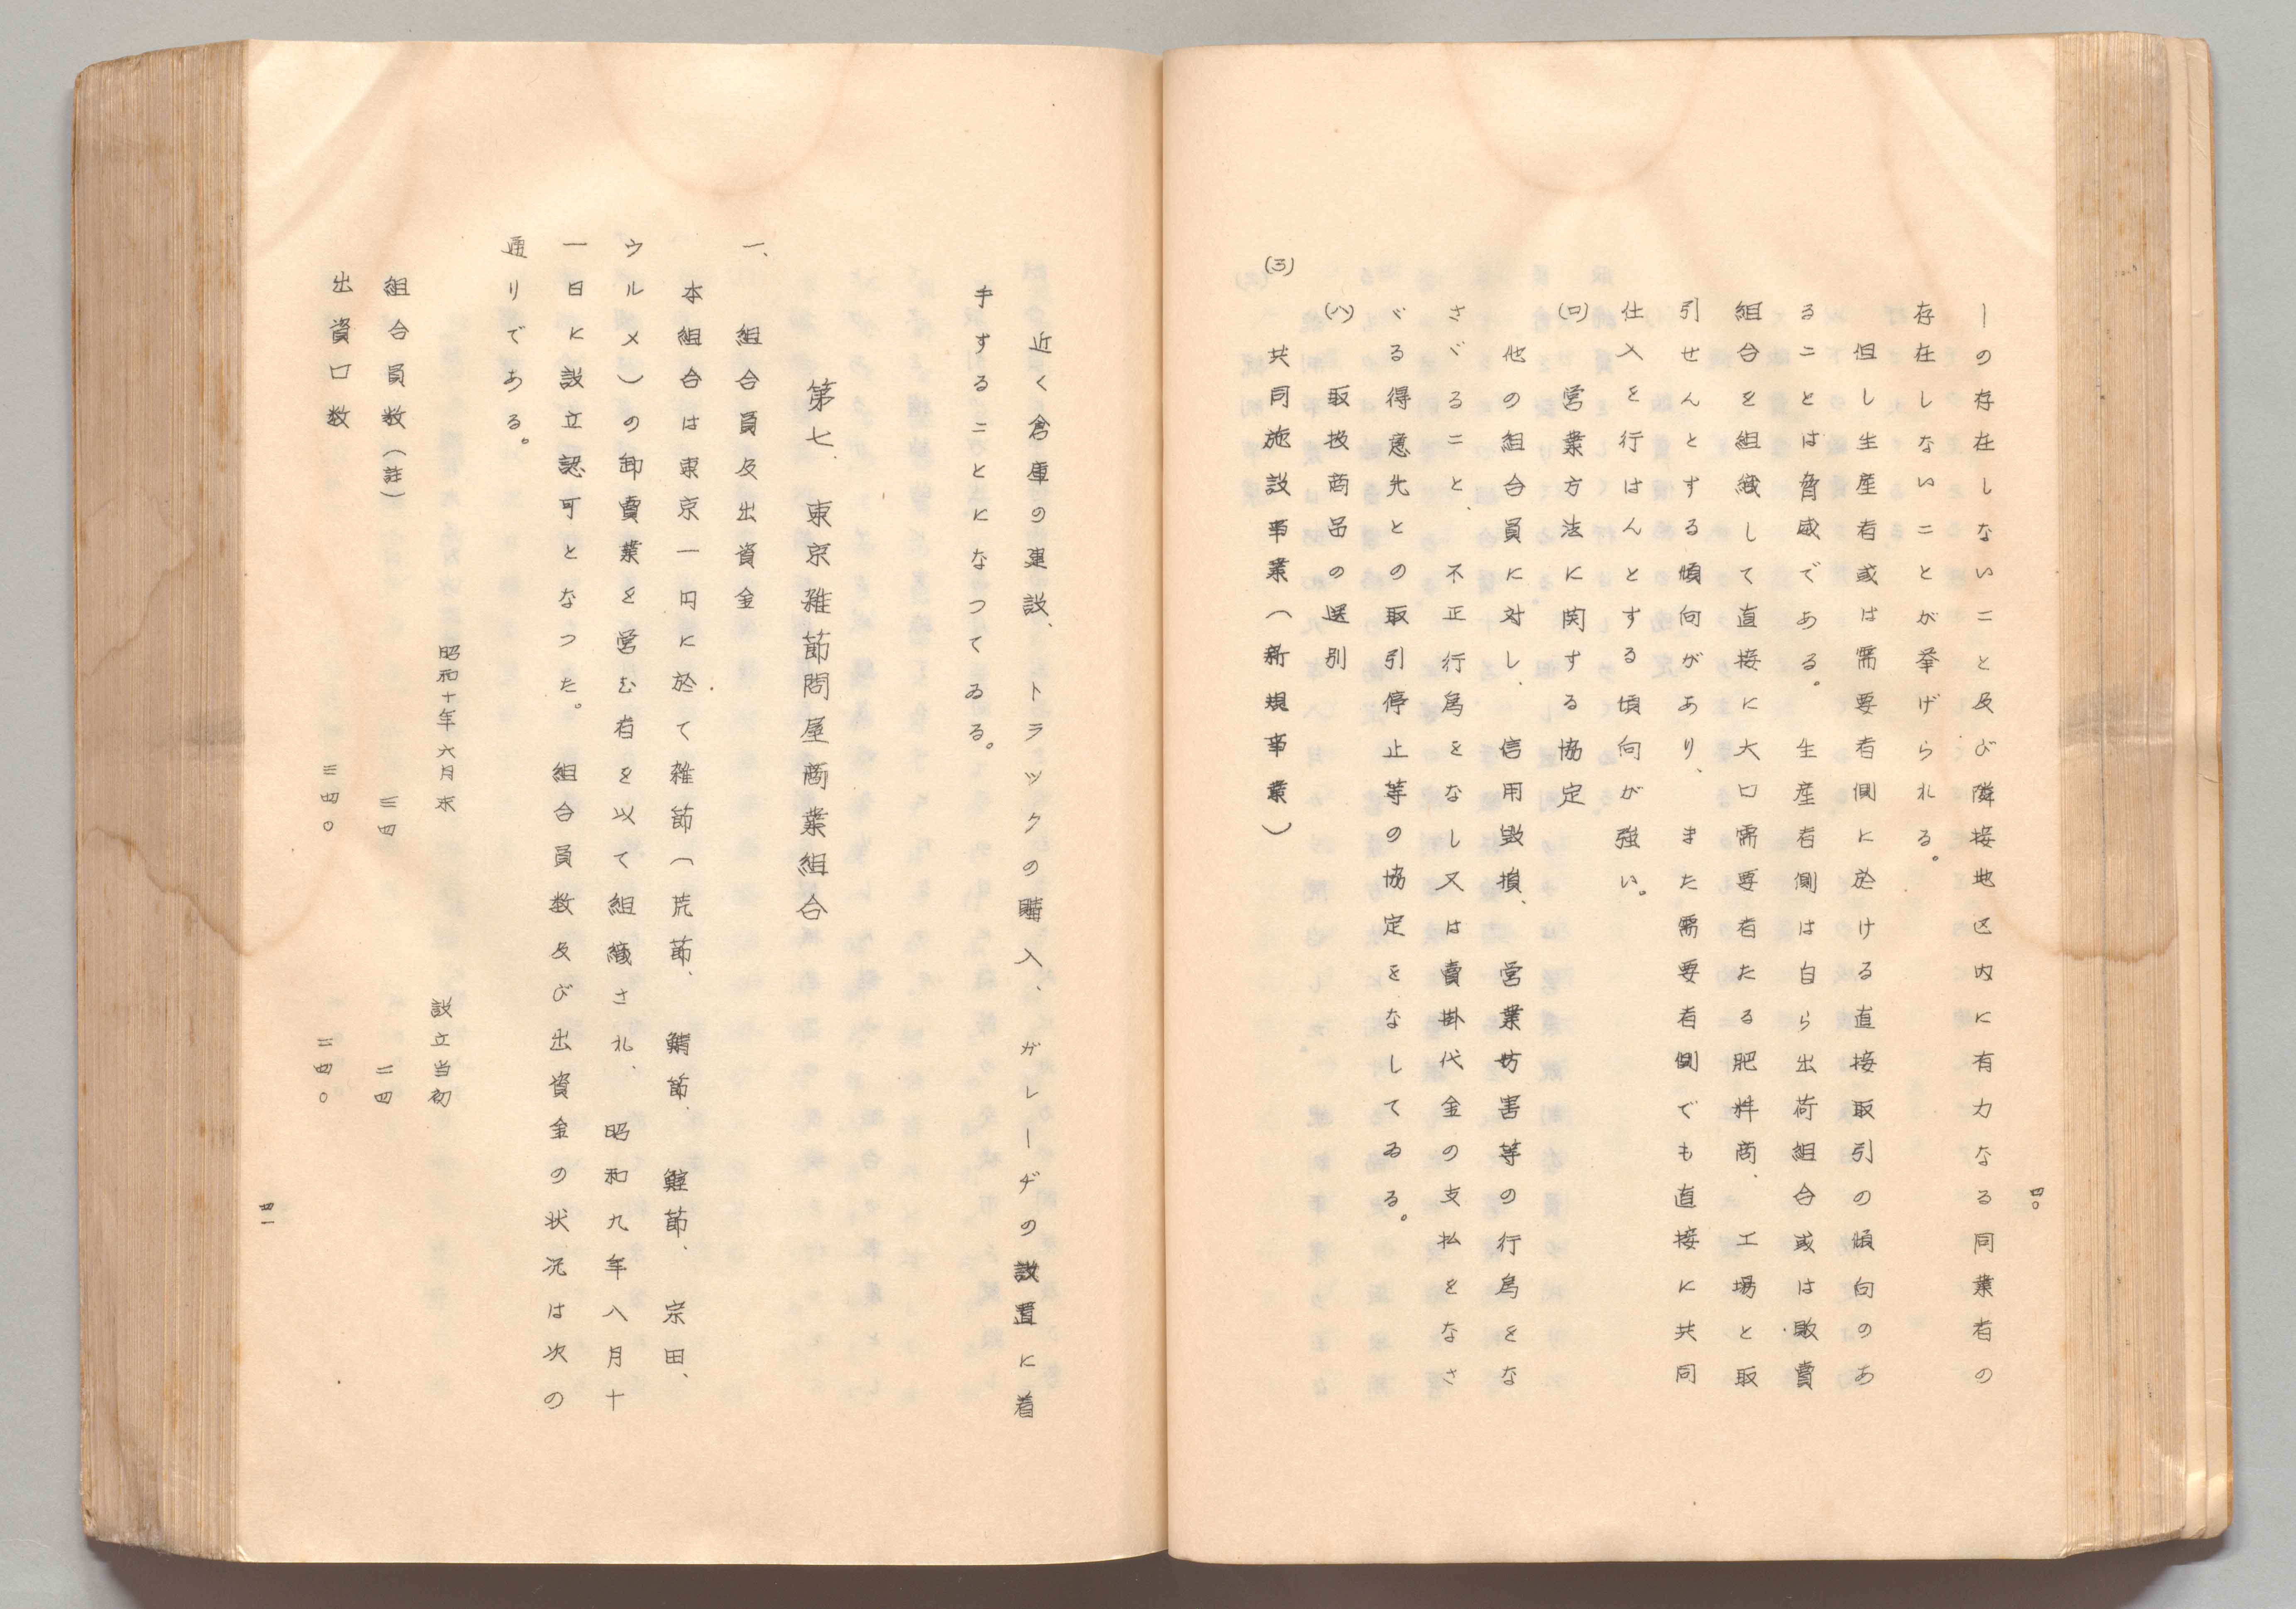 四〇
ーの存在しないこと及び隣接地区内に有力なる同業者の
存在しないことが挙げられる。
但し生産者或は需要者側に於ける直接取引の傾向のあ
ることは脅威である。生産者側は自ら出荷組合或は販賣
組合を組織して直接に大口需要者たる肥料商、工場と取
引せんとする傾向があり、また需要者側でも直接に共同
仕入を行はんとする傾向が強い。
(ロ) 営業方法に関する協定
他の組合員に対し、信用毀損、営業妨害等の行為をな
さゞること、不正行為をなし又は賣掛代金の支払をなさ
ゞる得意先との取引停止等の協定をなしてゐる。
(ハ) 取扱商品の選別
(3) 共同施設事業(新規事業)
近く倉庫の建設、トラツクの購入、ガレーヂの設置に着
手することになつてゐる。
第七、東京雑節問屋商業組合
一、組合員及出資金
本組合は東京一円に於て雑節(荒節、鯖節、鰹節、宗田、
ウルメ)の卸賣業を営む者を以て組織され、昭和九年八月十
一日に設立認可となつた。組合員数及び出資金の状況は次の
通りである。
昭和十年六月末 設立当初
組合員数(註) 三四 二四
出資口数 三四〇 二四〇
四一